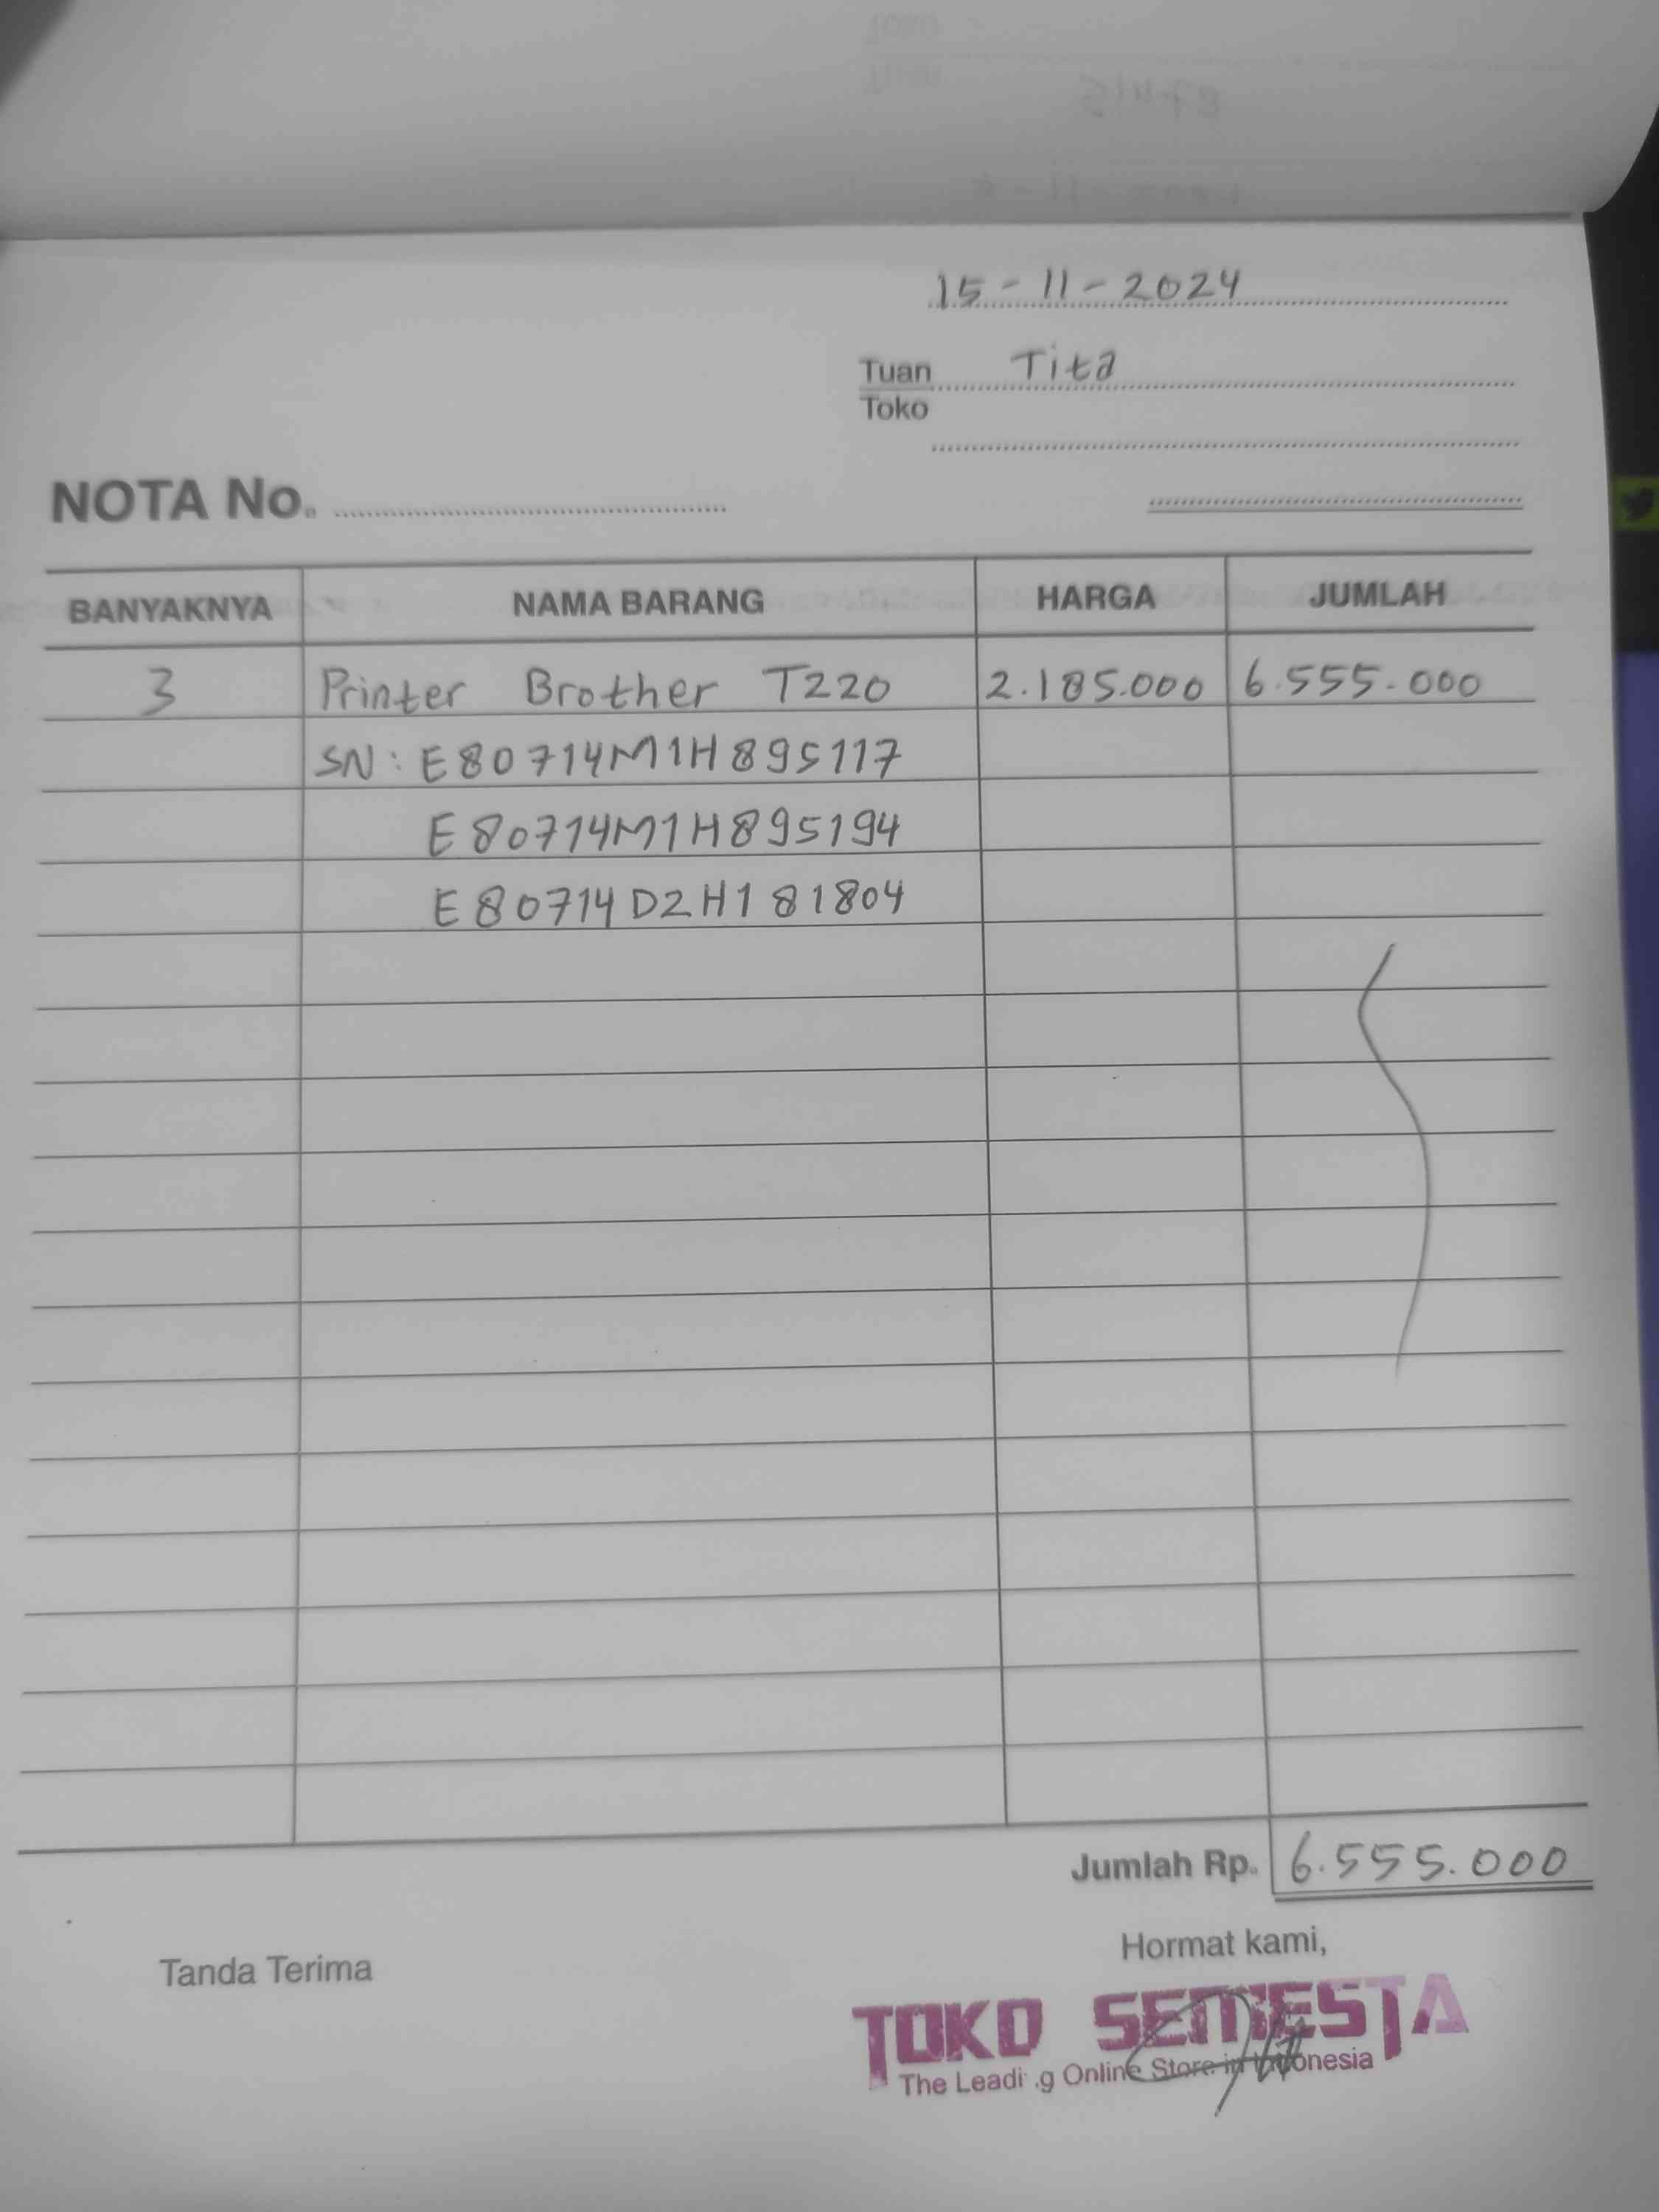 15-11-2024
Tuan Tita
Toko
NOTA No.
BANYAKNYA NAMA BARANG HARGA JUMLAH
3 Printer Brother T220 2.185.000 6.555.000
SN: E80714M1H895117
E80714M1H895194
E80714D2H181804
Jumlah Rp. 6.555.000
Tanda Terima Hormat kami,
TOKO SEMESTA
The Leading Online Store in Indonesia